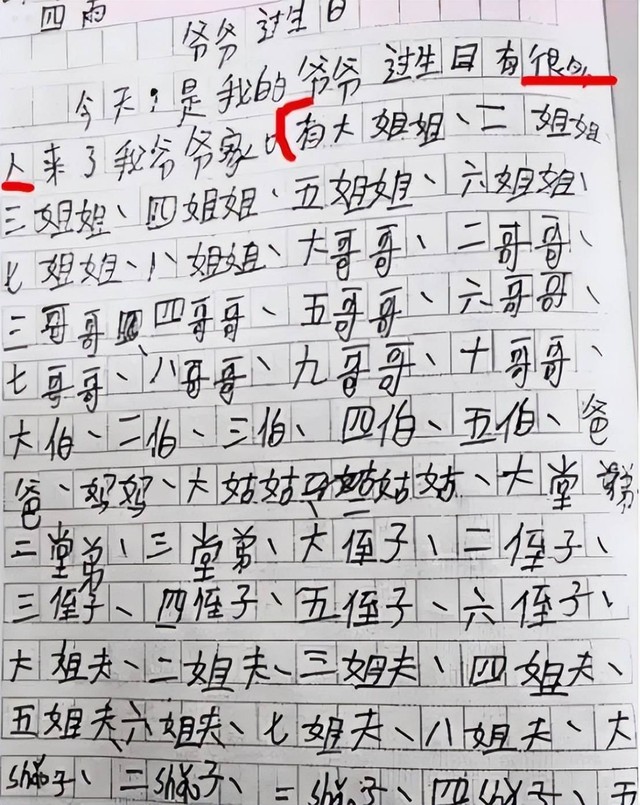 四雨
爷爷过生日
今天,是我的爷爷过生日有很多
人来了我爷爷家，有大姐姐、二姐姐
三姐姐、四姐姐、五姐姐、六姐姐、
七姐姐、八姐姐、大哥哥、二哥哥、
三哥哥、四哥哥、五哥哥、六哥哥、
七哥哥、八哥哥、九哥哥、十哥哥、
大伯、二伯、三伯、四伯、五伯、爸
爸、妈妈、大姑姑、二姑姑、大堂弟
二堂弟、三堂弟、大侄子、二侄子、
三侄子、四侄子、五侄子、六侄子、
大姐夫、二姐夫、三姐夫、四姐夫、
五姐夫、六姐夫、七姐夫、八姐夫、大
sháo子、二sháo子、三sháo子、四sháo子、五